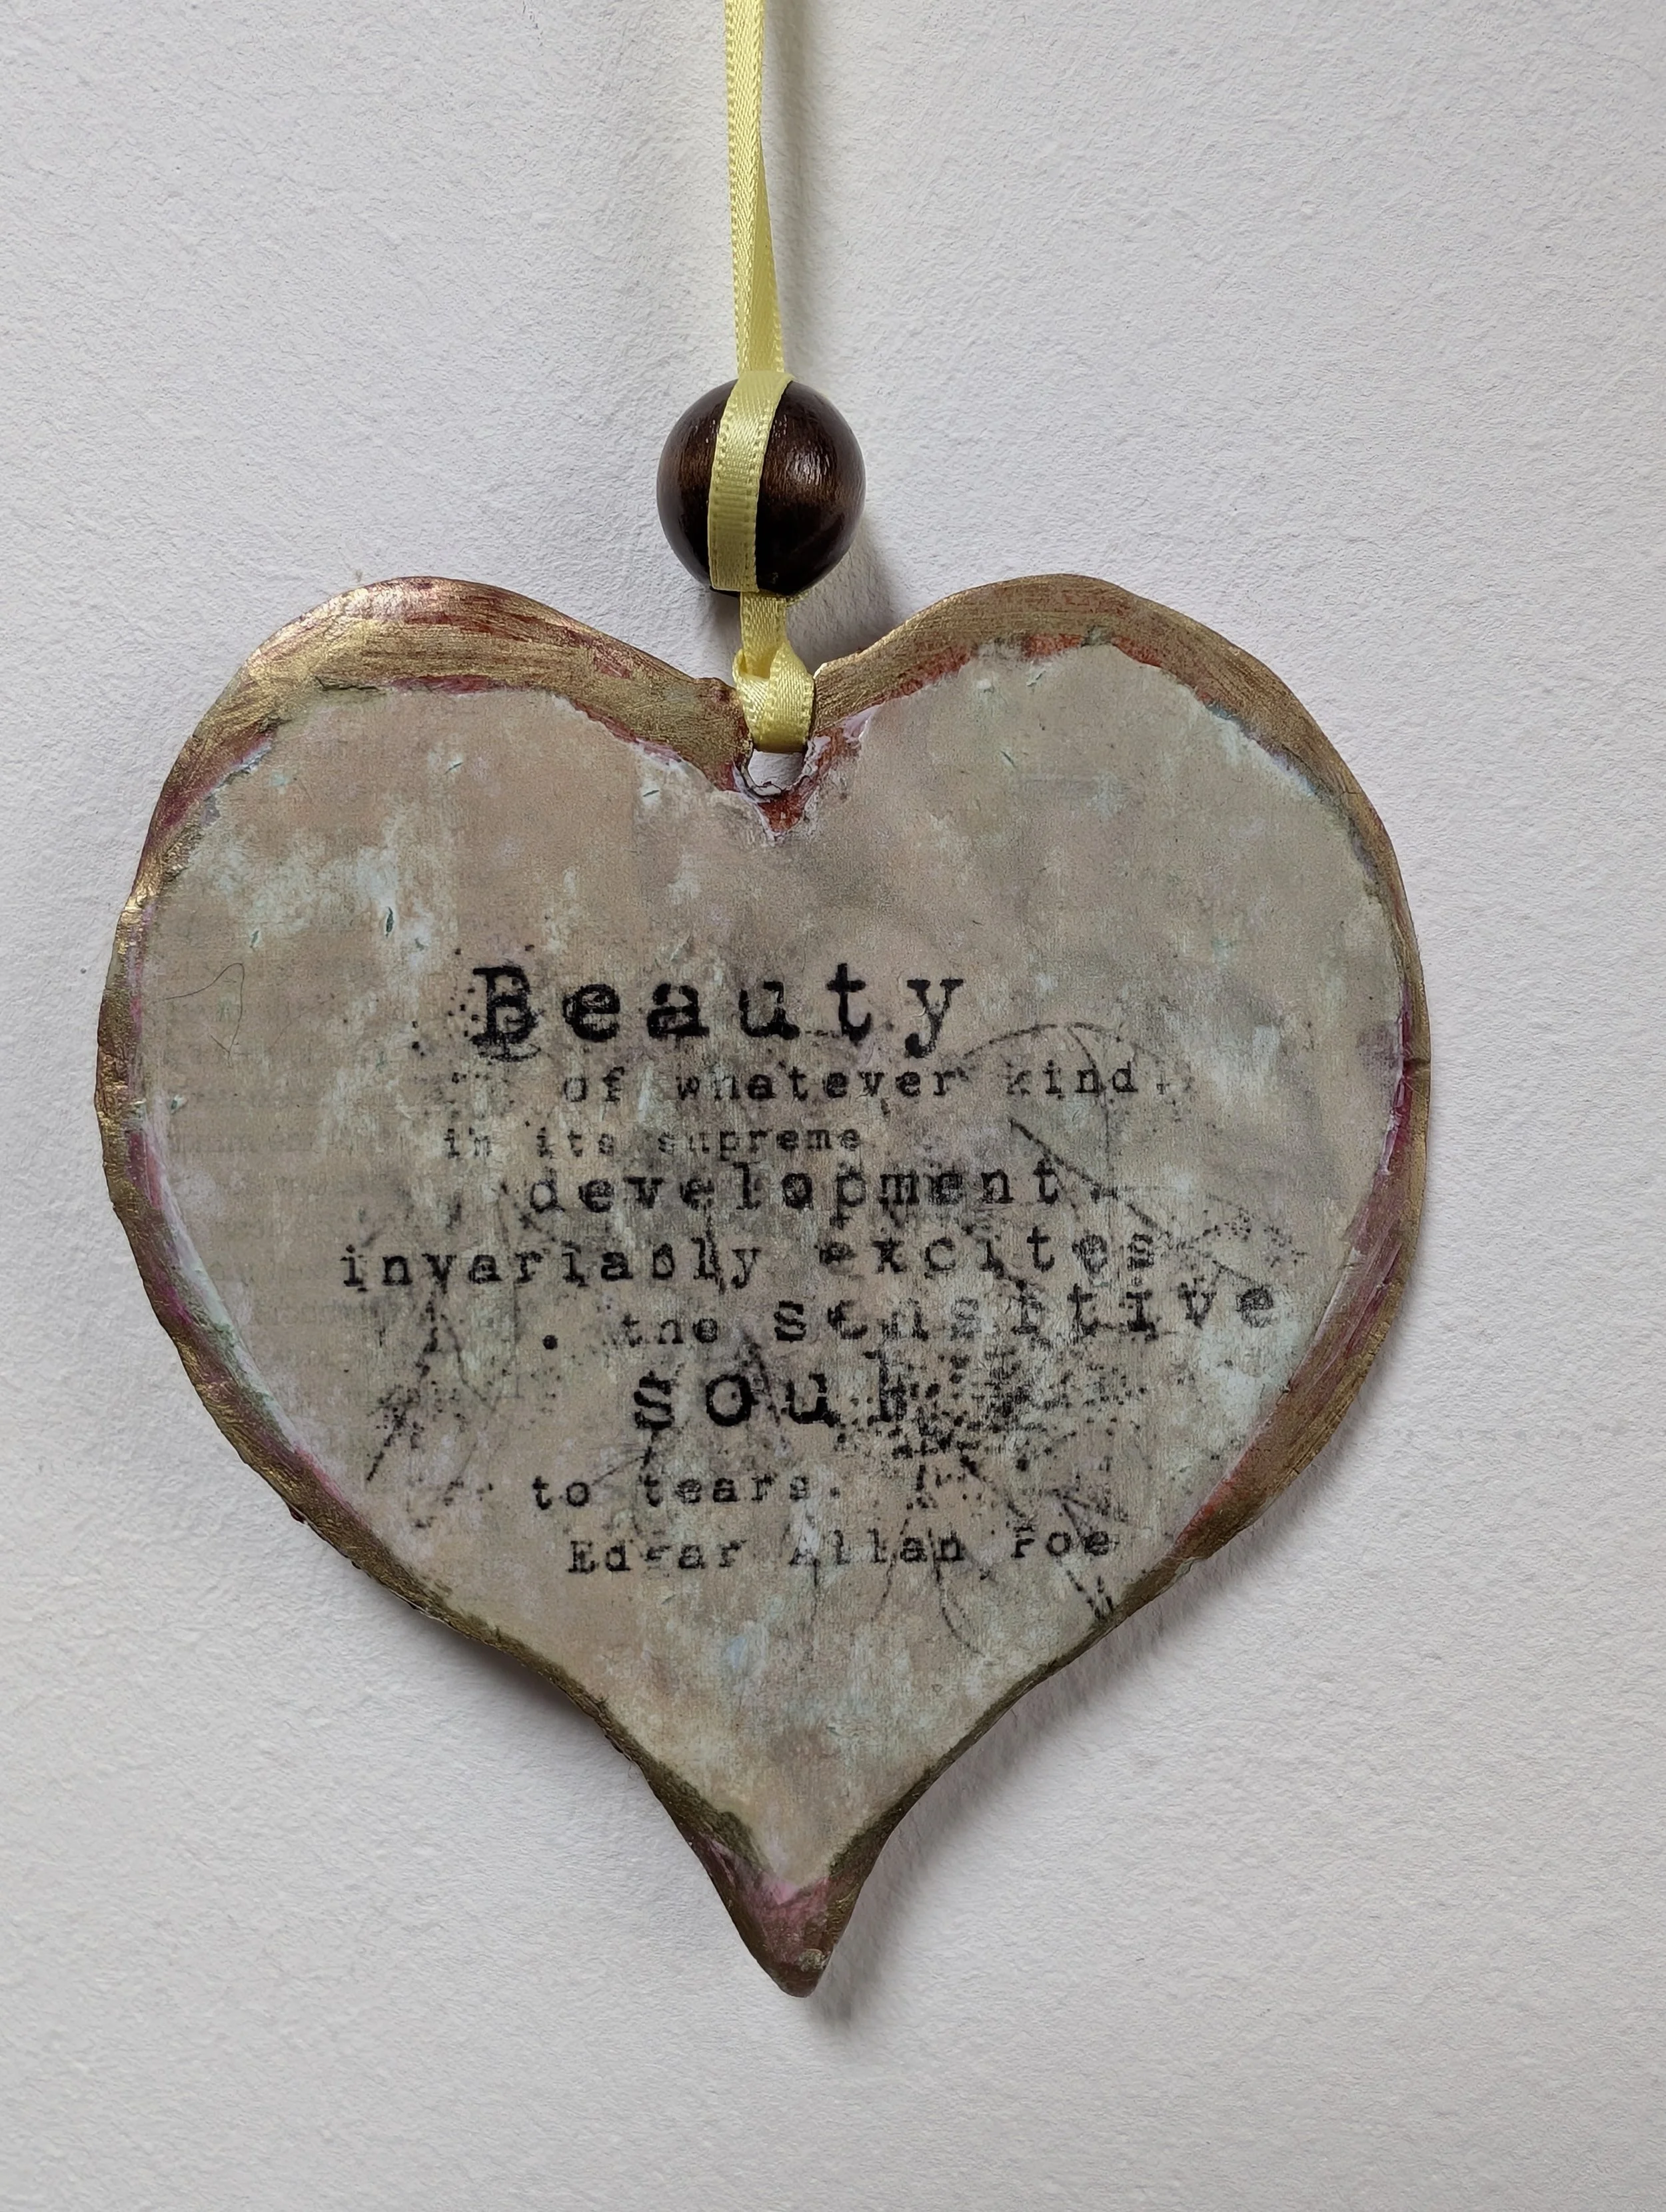 Beauty
of whatever kind,
in its supreme
development
invariably excites
the sensitive
soul
to tears.
Edgar Allan Poe